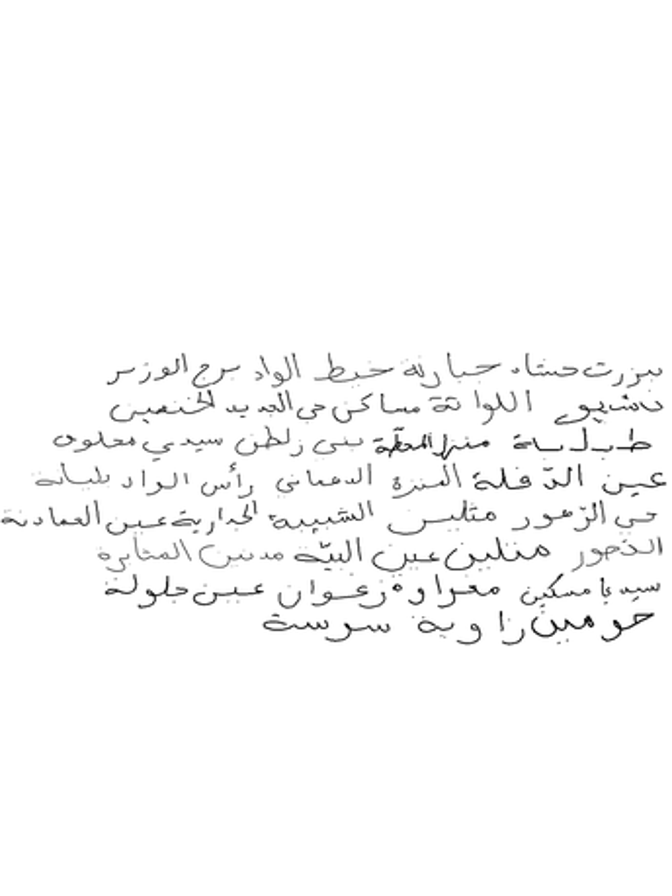 بنزرت حشاد جبارنة خيط الواد برج الوزير
باشيو اللواتة مساكن حي الجديد الخنفيين
طبلبة منزل المحطة بني زلطن سيدي مخلوف
عين الدفلة المنزة الدهماني رأس الواد بليانة
حي الزهور مثليس الشبيبة الجدارية عين الغمادنة
الذخور متلين عين البيّة مدنين المثابرة
سيدي بامسكين مغراوة زغوان عين جلولة
حومين زاوية سوسة